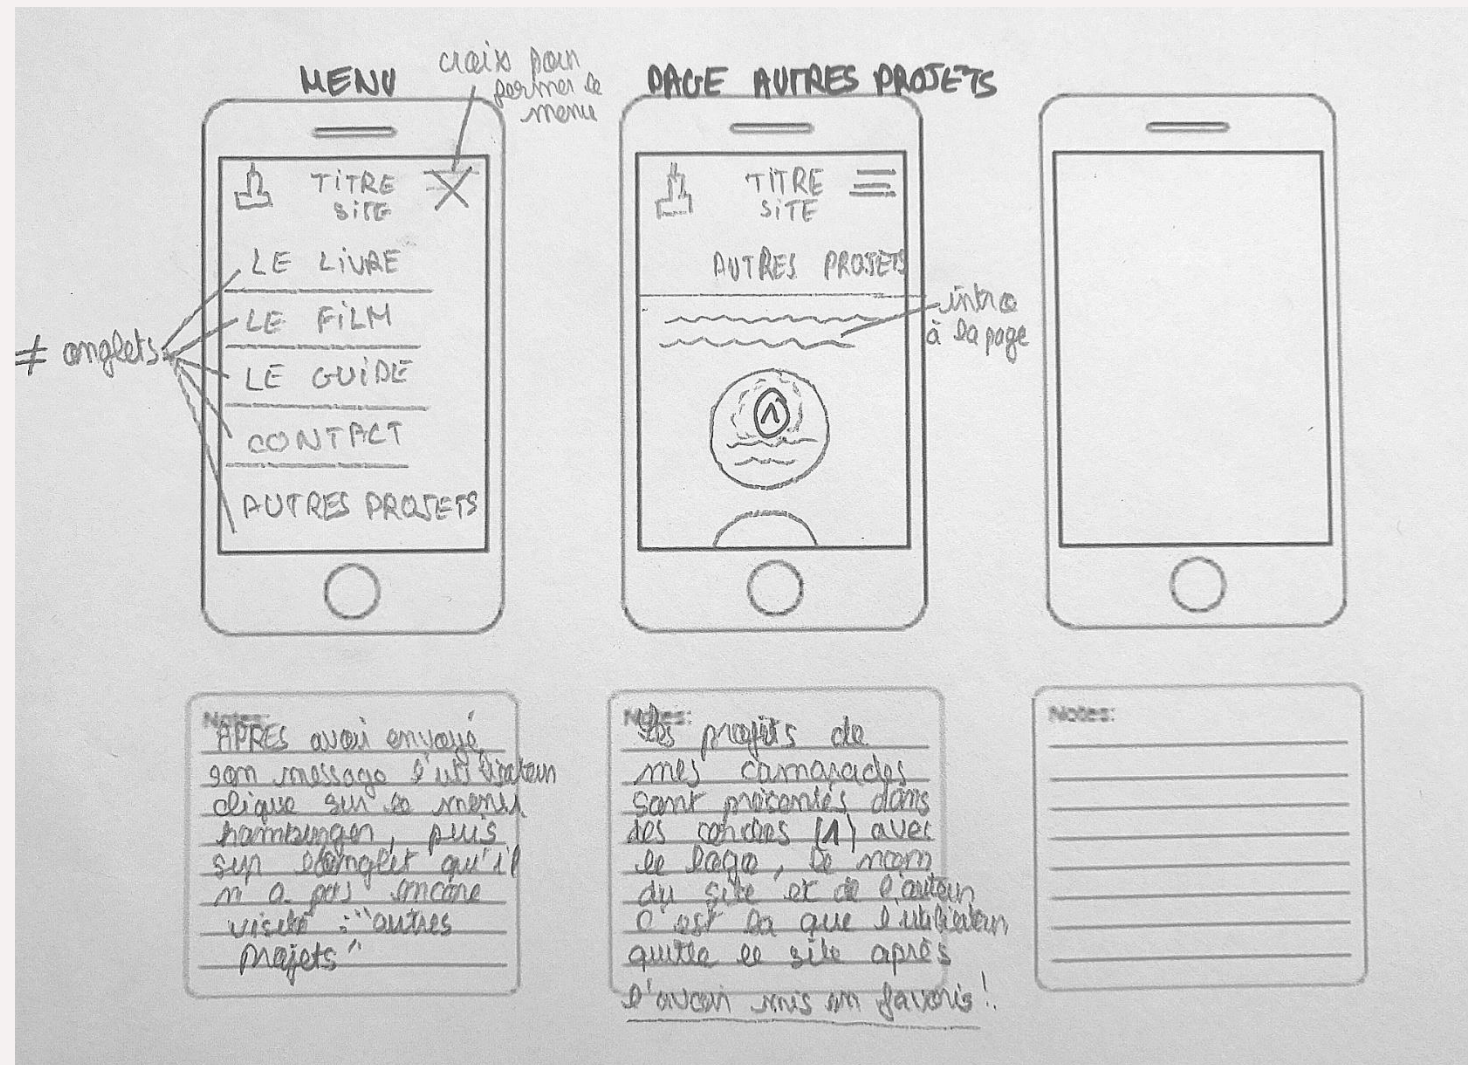 MENU
croix pour
fermer le
menu
TITRE
SITE
LE LIVRE
LE FILM
≠ onglets
LE GUIDE
CONTACT
AUTRES PROJETS
PAGE AUTRES PROJETS
TITRE
SITE
AUTRES PROJETS
intro
à la page
1
Notes:
APRES avoir envoyé
son message l'utilisateur
clique sur le menu
hamburger, puis
sur l'onglet qu'il
n'a pas encore
visité : "autres
projets"
Notes:
Les projets de
mes camarades
sont présentés dans
des cercles (1) avec
le logo, le nom
du site et de l'auteur
C'est là que l'utilisateur
quitte le site après
l'avoir mis en favoris !
Notes: